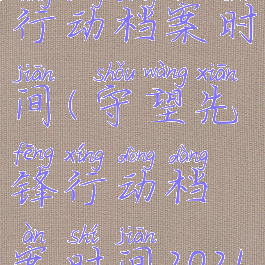 行动档案时
jiān shǒu wàng xiān
间(守望先
fēng xíng dòng dàng
锋行动档
àn shí jiān
案时间2021